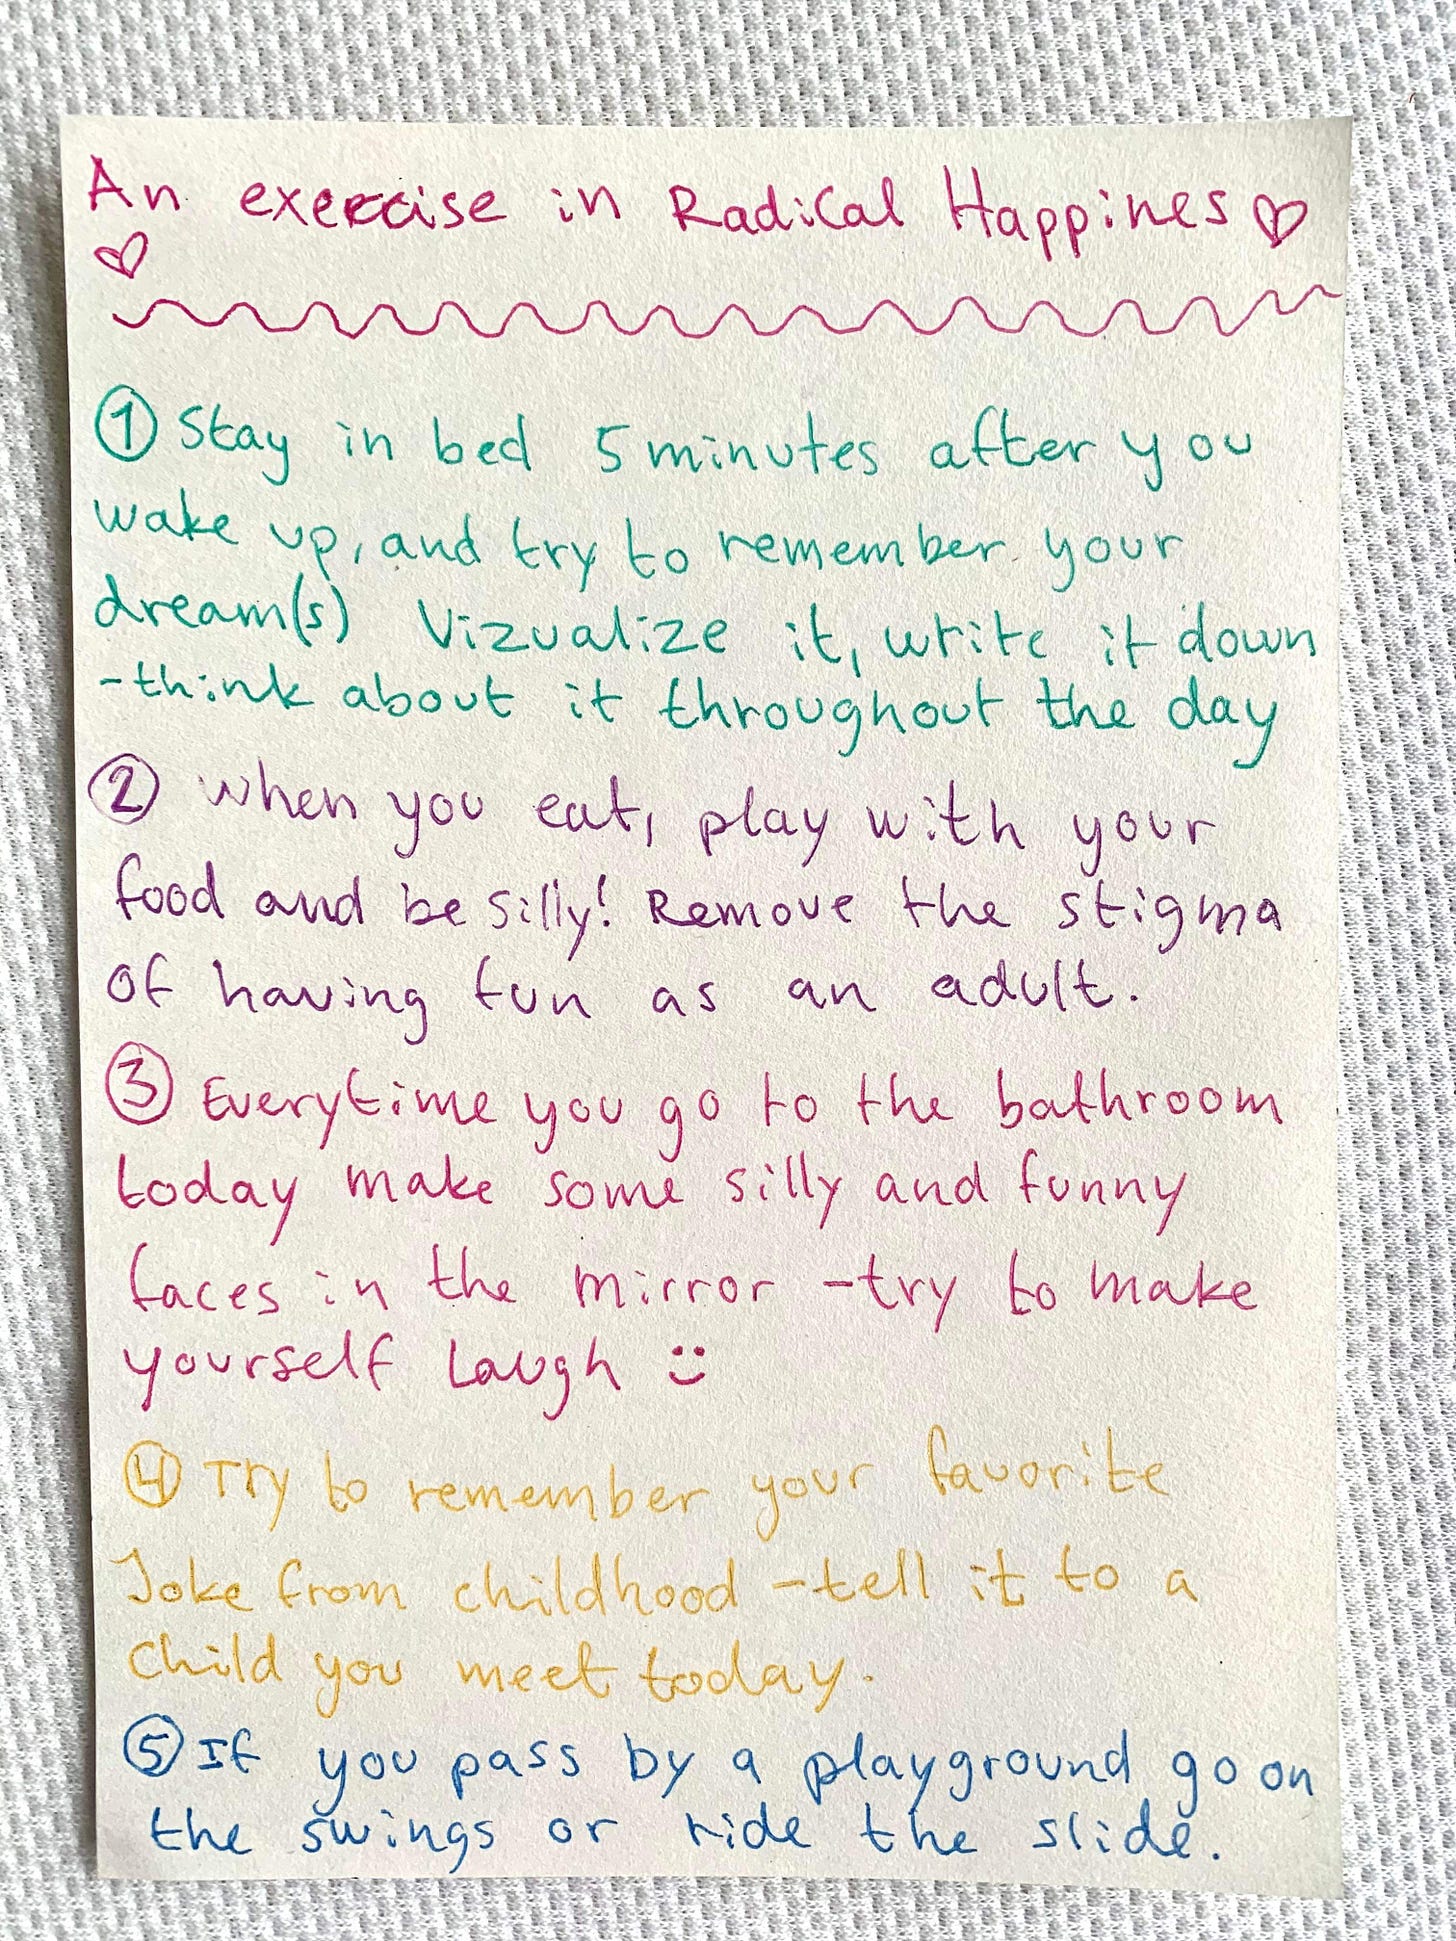 An exercise in Radical Happines ♡
♡
① Stay in bed 5 minutes after you
wake up, and try to remember your
dream(s) Vizualize it, write it down
-think about it throughout the day
② When you eat, play with your
food and be silly! Remove the stigma
of having fun as an adult.
③ Everytime you go to the bathroom
today make some silly and funny
faces in the mirror -try to make
yourself Laugh :)
④ Try to remember your favorite
Joke from childhood -tell it to a
child you meet today.
⑤ If you pass by a playground go on
the swings or ride the slide.